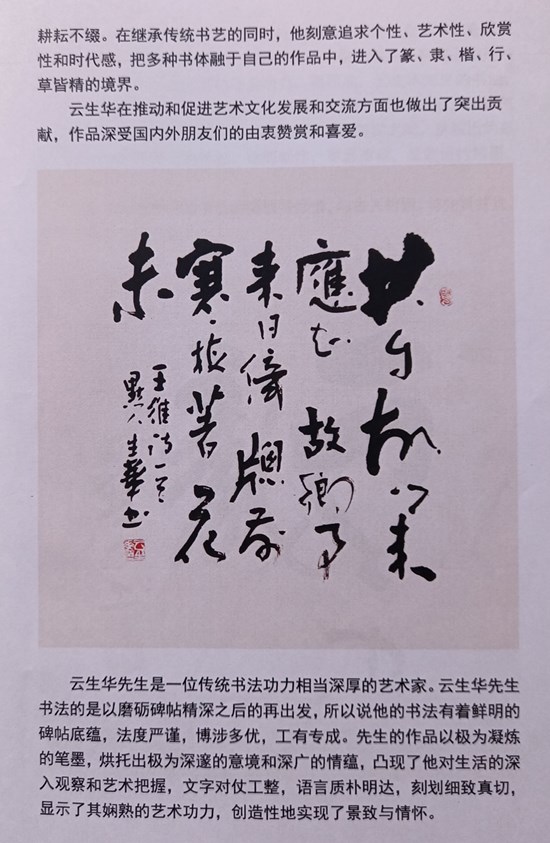 耕耘不缀。在继承传统书艺的同时，他刻意追求个性、艺术性、欣赏
性和时代感，把多种书体融于自己的作品中，进入了篆、隶、楷、行、
草皆精的境界。
云生华在推动和促进艺术文化发展和交流方面也做出了突出贡
献，作品深受国内外朋友们的由衷赞赏和喜爱。
君自故乡来
應知故鄉事
来日綺牕前
寒梅著花
未
王維诗一首
云生華书
云生华先生是一位传统书法功力相当深厚的艺术家。云生华先生
书法的是以磨砺碑帖精深之后的再出发，所以说他的书法有着鲜明的
碑帖底蕴，法度严谨，博涉多优，工有专成。先生的作品以极为凝炼
的笔墨，烘托出极为深邃的意境和深广的情蕴，凸现了他对生活的深
入观察和艺术把握，文字对仗工整，语言质朴明达，刻划细致真切，
显示了其娴熟的艺术功力，创造性地实现了景致与情怀。